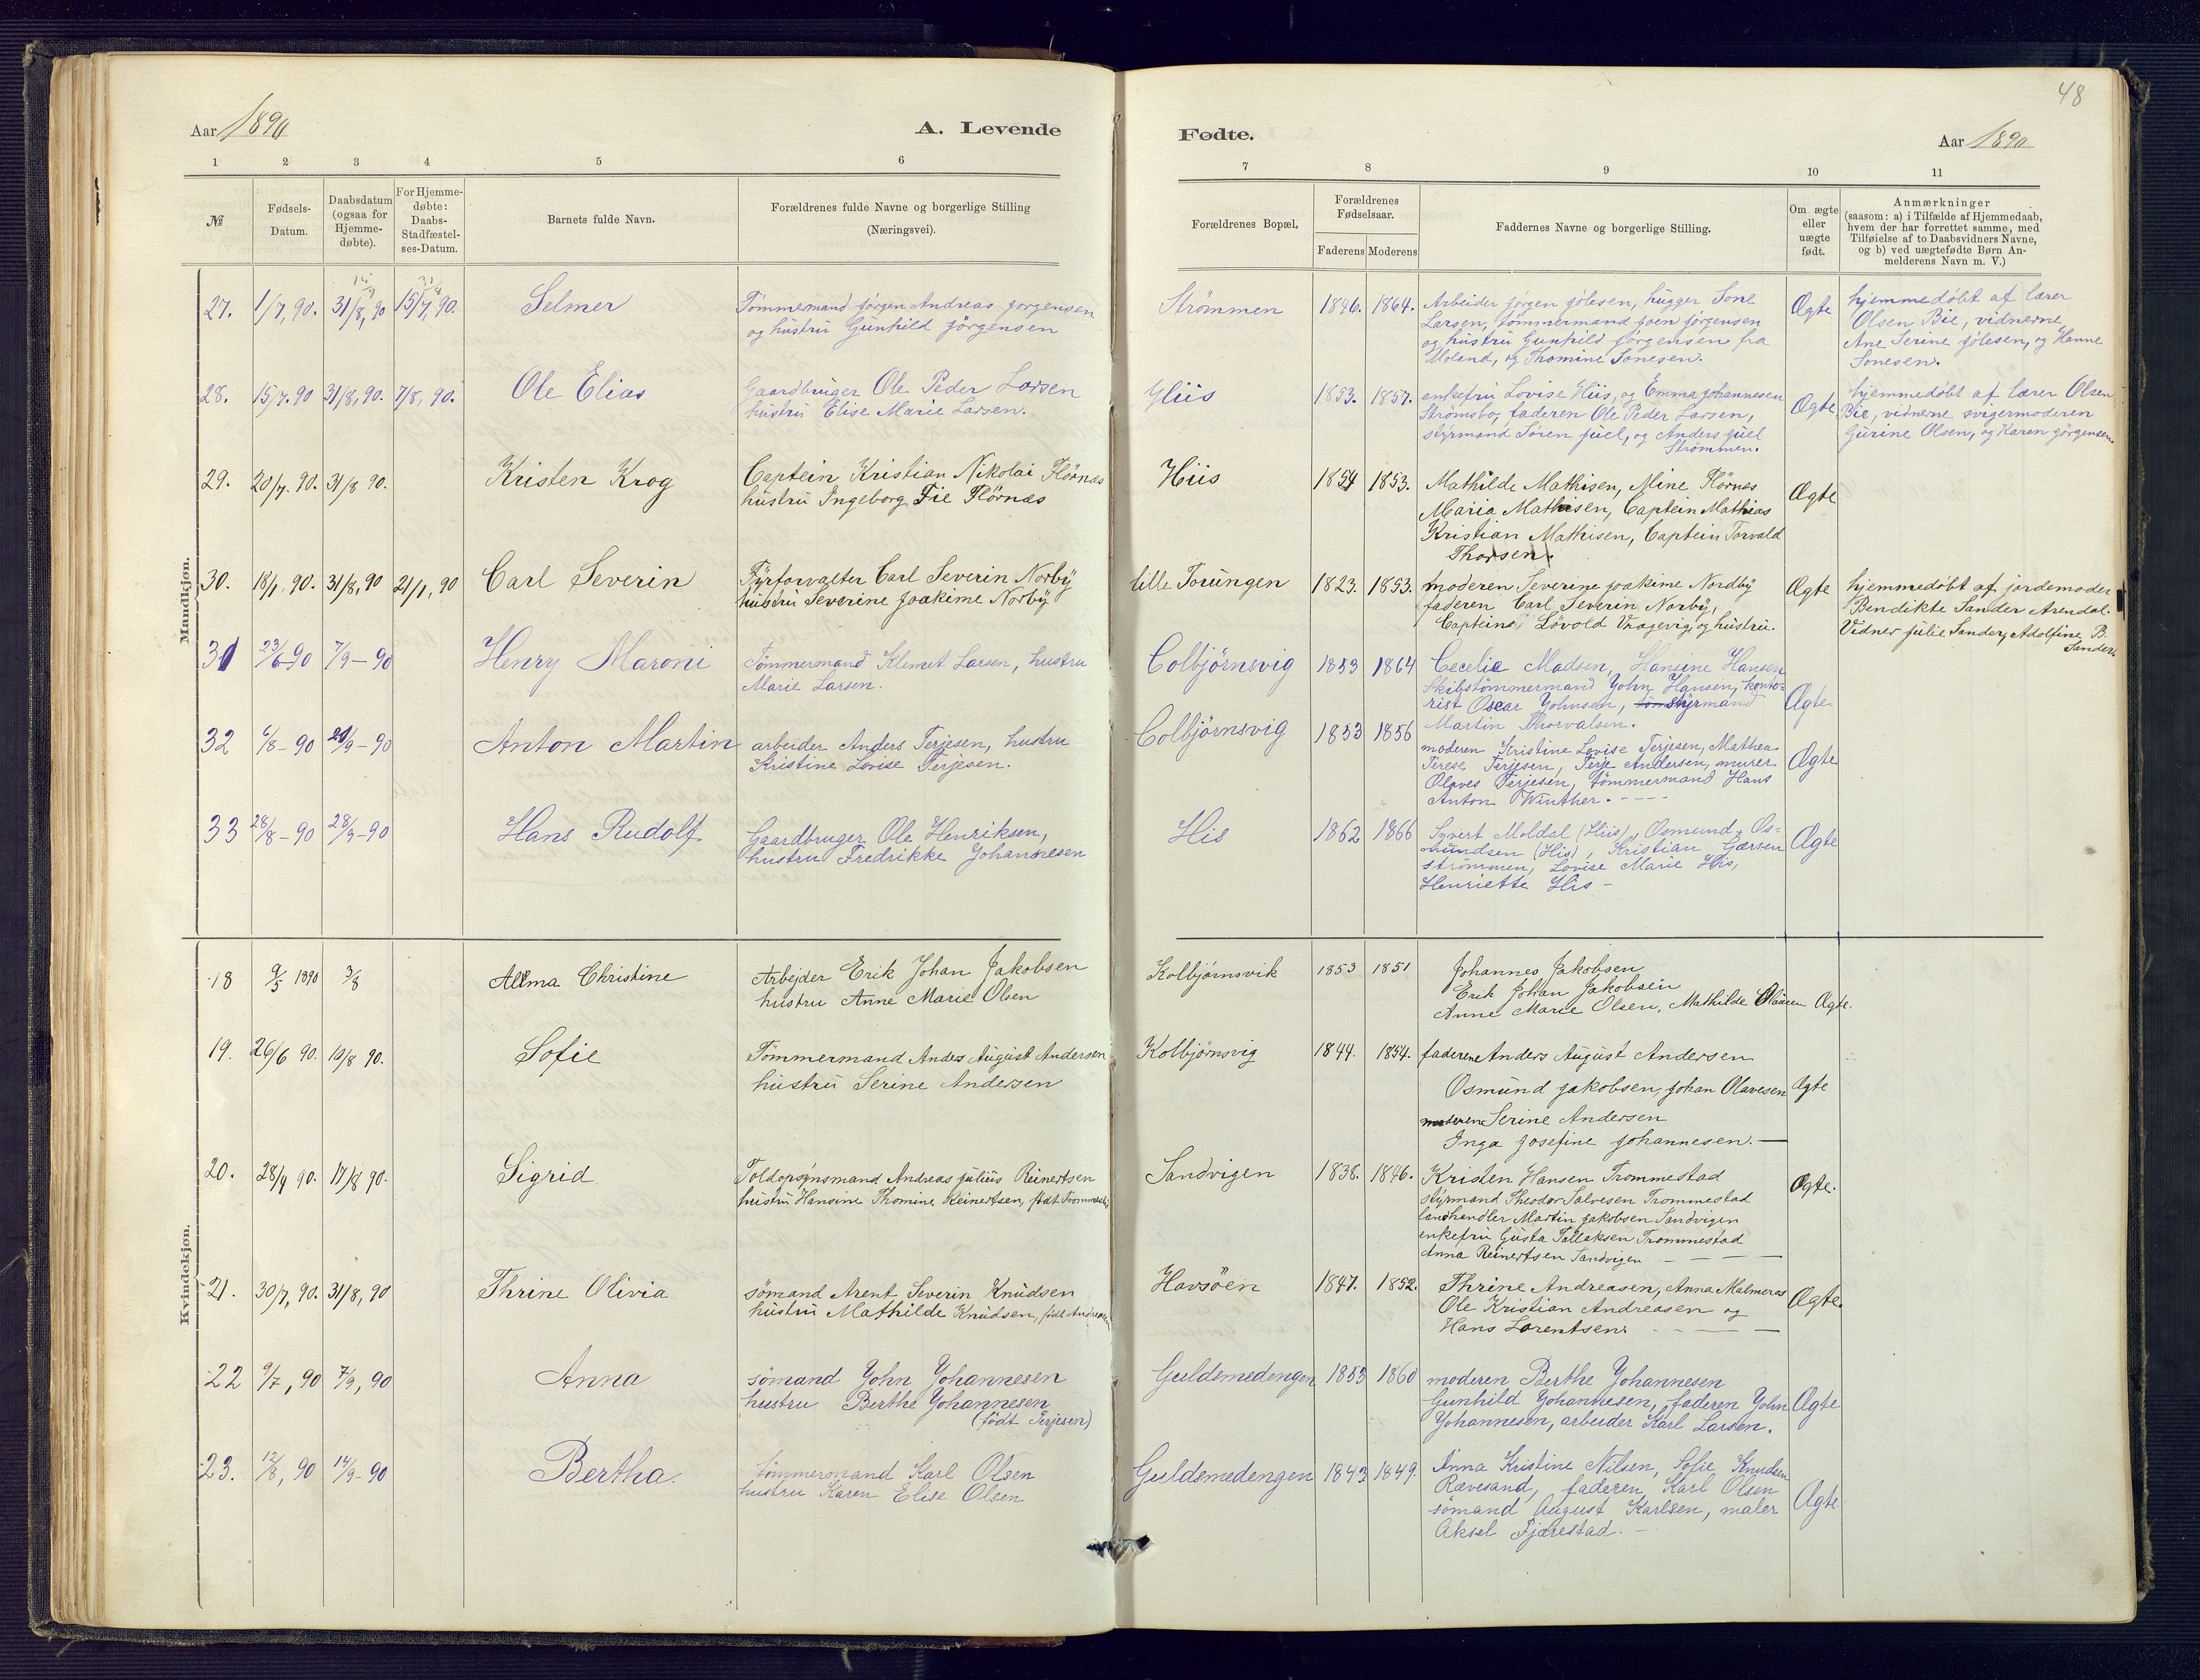 48
Aar 1890
A. Levende
Fødte.
Aar 1890
1 2 3 4 5 6
7 8 9 10 11
№
Fødsels-
Datum.
Daabsdatum
(ogsaa for
Hjemme-
døbte).
For Hjemme-
døbte:
Daabs-
Stadfæstel-
ses-Datum.
Barnets fulde Navn.
Forældrenes fulde Navne og borgerlige Stilling
(Næringsvei).
Forældrenes Bopæl.
Forældrenes
Fødselsaar.
Faderens Moderens
Faddernes Navne og borgerlige Stilling.
Om ægte
eller
uægte
født.
Anmærkninger
(saasom: a) i Tilfælde af Hjemmedaab,
hvem der har forrettet samme, med
Tilføielse af to Daabsvidners Navne,
og b) ved uægtefødte Børn An-
melderens Navn m. V.)
Mandkjøn.
27. 1/7, 90. 31/8, 90 15/7, 90. Selmer
Tömmermand Jörgen Andreas Jorgensen
og hustru Gunhild Jörgensen
Strömmen 1846. 1864.
Arbeider Jörgen Jölesen, hugger Sone
Larsen, tömmermand Joen Jörgensen
og hustru Gunhild Jorgensen fra
Moland, og Thomine Sonesen.
Ægte
hjemmedöbt af lærer
Olsen Bie, vidnerne
Ane Serine Jölesen, og Hanne
Sonesen.
28. 15/7. 90 31/8, 90. 7/8, 90. Ole Elias
Gaardbruger Ole Peder Larsen
hustru Elise Marie Larsen.
Hiis 1853. 1857.
enkefru Lovise Hiis, og Emma Johannesen
Strömsbo, faderen Ole Peder Larsen,
styrmand Sören Juel, og Anders Juel
Strömmen.
Ægte
hjemmedöbt af lærer Olsen
Bie, vidnerne svigermoderen
Gurine Olsen, og Karen Jörgensen.
29. 20/7. 90. 31/8 90. Kristen Krog
Captein Kristian Nikolai Flörnæs
hustru Ingeborg Fie Flörnæs
Hiis 1854 1853.
Mathilde Mathisen, Mine Flörnes
Maria Mathisen, Captein Mathias
Kristian Mathisen, Captein Torvald
Thorsen.
Ægte
30. 18/1. 90. 31/8, 90 21/1, 90 Carl Severin
Fyrforvalter Carl Severin Norby
hustru Severine Joakime Norby
lille Torungen 1823. 1853.
moderen Severine Joakime Nordby
faderen Carl Severin Norby,
Captein Lövold Vragevig, og hustru.
Ægte
hjemmedöbt af jordemoder
Bendikte Sander Arendal.
Vidner Julie Sander, Adolfine B.
Sander.
31 23/6-90 7/9-90 Henry Maroni
Tömmermand Klemet Larsen, hustru
Marie Larsen.
Colbjörnsvig 1853 1864
Cecelie Madsen, Hansine Hansen
Skibstömmermand John Hansen, konto-
rist Oscar Johnsen, styrmand
Martin Thorvalsen.
Ægte
32 6/8-90 21/9-90 Anton Martin
arbeider Anders Terjesen, hustru
Kristine Lovise Terjesen.
Colbjörnsvig 1853 1856
moderen Kristine Lovise Terjesen, Mathea
Terese Terjesen, Terje Andersen, murer
Olaves Terjesen, tömmermand Hans
Anton Winther.
Ægte
33 28/8-90 28/9-90 Hans Rudolf
Gaardbruger Ole Henriksen,
hustru Fredrikke Johannesen
His 1862 1866
Syvert Moldal (Hiis), Osmund Os-
mundsen (His), Kristian Garsen
strömmen, Lovise Marie His,
Henriette His -
Ægte
Kvindekjøn.
18 9/5 1890 3/8 Alma Christine
Arbejder Erik Johan Jakobsen
hustru Anne Marie Olsen
Kolbjörnsvik 1853 1851
Johannes Jakobsen
Erik Johan Jakobsen
Anne Marie Olsen, Mathilde Ægte.
19. 26/6 90. 10/8 90. Sofie
Tömmermand Anders August Andersen
hustru Serine Andersen
Kolbjörnsvig 1844. 1854.
faderen Anders August Andersen
Osmund Jakobsen, Johan Olavesen Ægte
moderen Serine Andersen
Inga Josefine Johannesen.
20. 28/4 90. 17/8 90. Sigrid
Toldopsynsmand Andreas Julius Reinertsen
hustru Hansine Thomine Reinertsen, födt Trommestad
Sandvigen 1838. 1846.
Kristen Hansen Trommestad
styrmand Theodor Salvesen Trommestad
landhandler Martin Jakobsen Sandvigen
enkefru Gusta Tallaksen Trommestad
Anna Reinertsen Sandvigen
Ægte.
21. 30/7, 90. 31/8, 90 Thrine Olivia
sömand Arent Severin Knudsen
hustru Mathilde Knudsen, födt Andreasen
Havsöen 1847. 1852.
Thrine Andreasen, Anna Malmeras
Ole Kristian Andreasen og
Hans Lorentsen.
Ægte.
22 9/7, 90 7/9, 90 Anna
sömand John Johannesen
hustru Berthe Johannesen
(födt Terjesen)
Guldsmedengen 1853 1860
moderen Berthe Johannesen
Gunhild Johannesen, faderen John
Johannesen, arbeider Karl Larsen.
Ægte
23. 12/8, 90 14/9-90 Bertha.
tömmermand Karl Olsen
hustru Karen Elise Olsen
Guldsmedengen 1843 1849.
Anna Kristine Nilsen, Sofie Knudsen
Rævesand, faderen Karl Olsen
sömand August Karlsen, maler
Aksel Fjærestad. -
Ægte